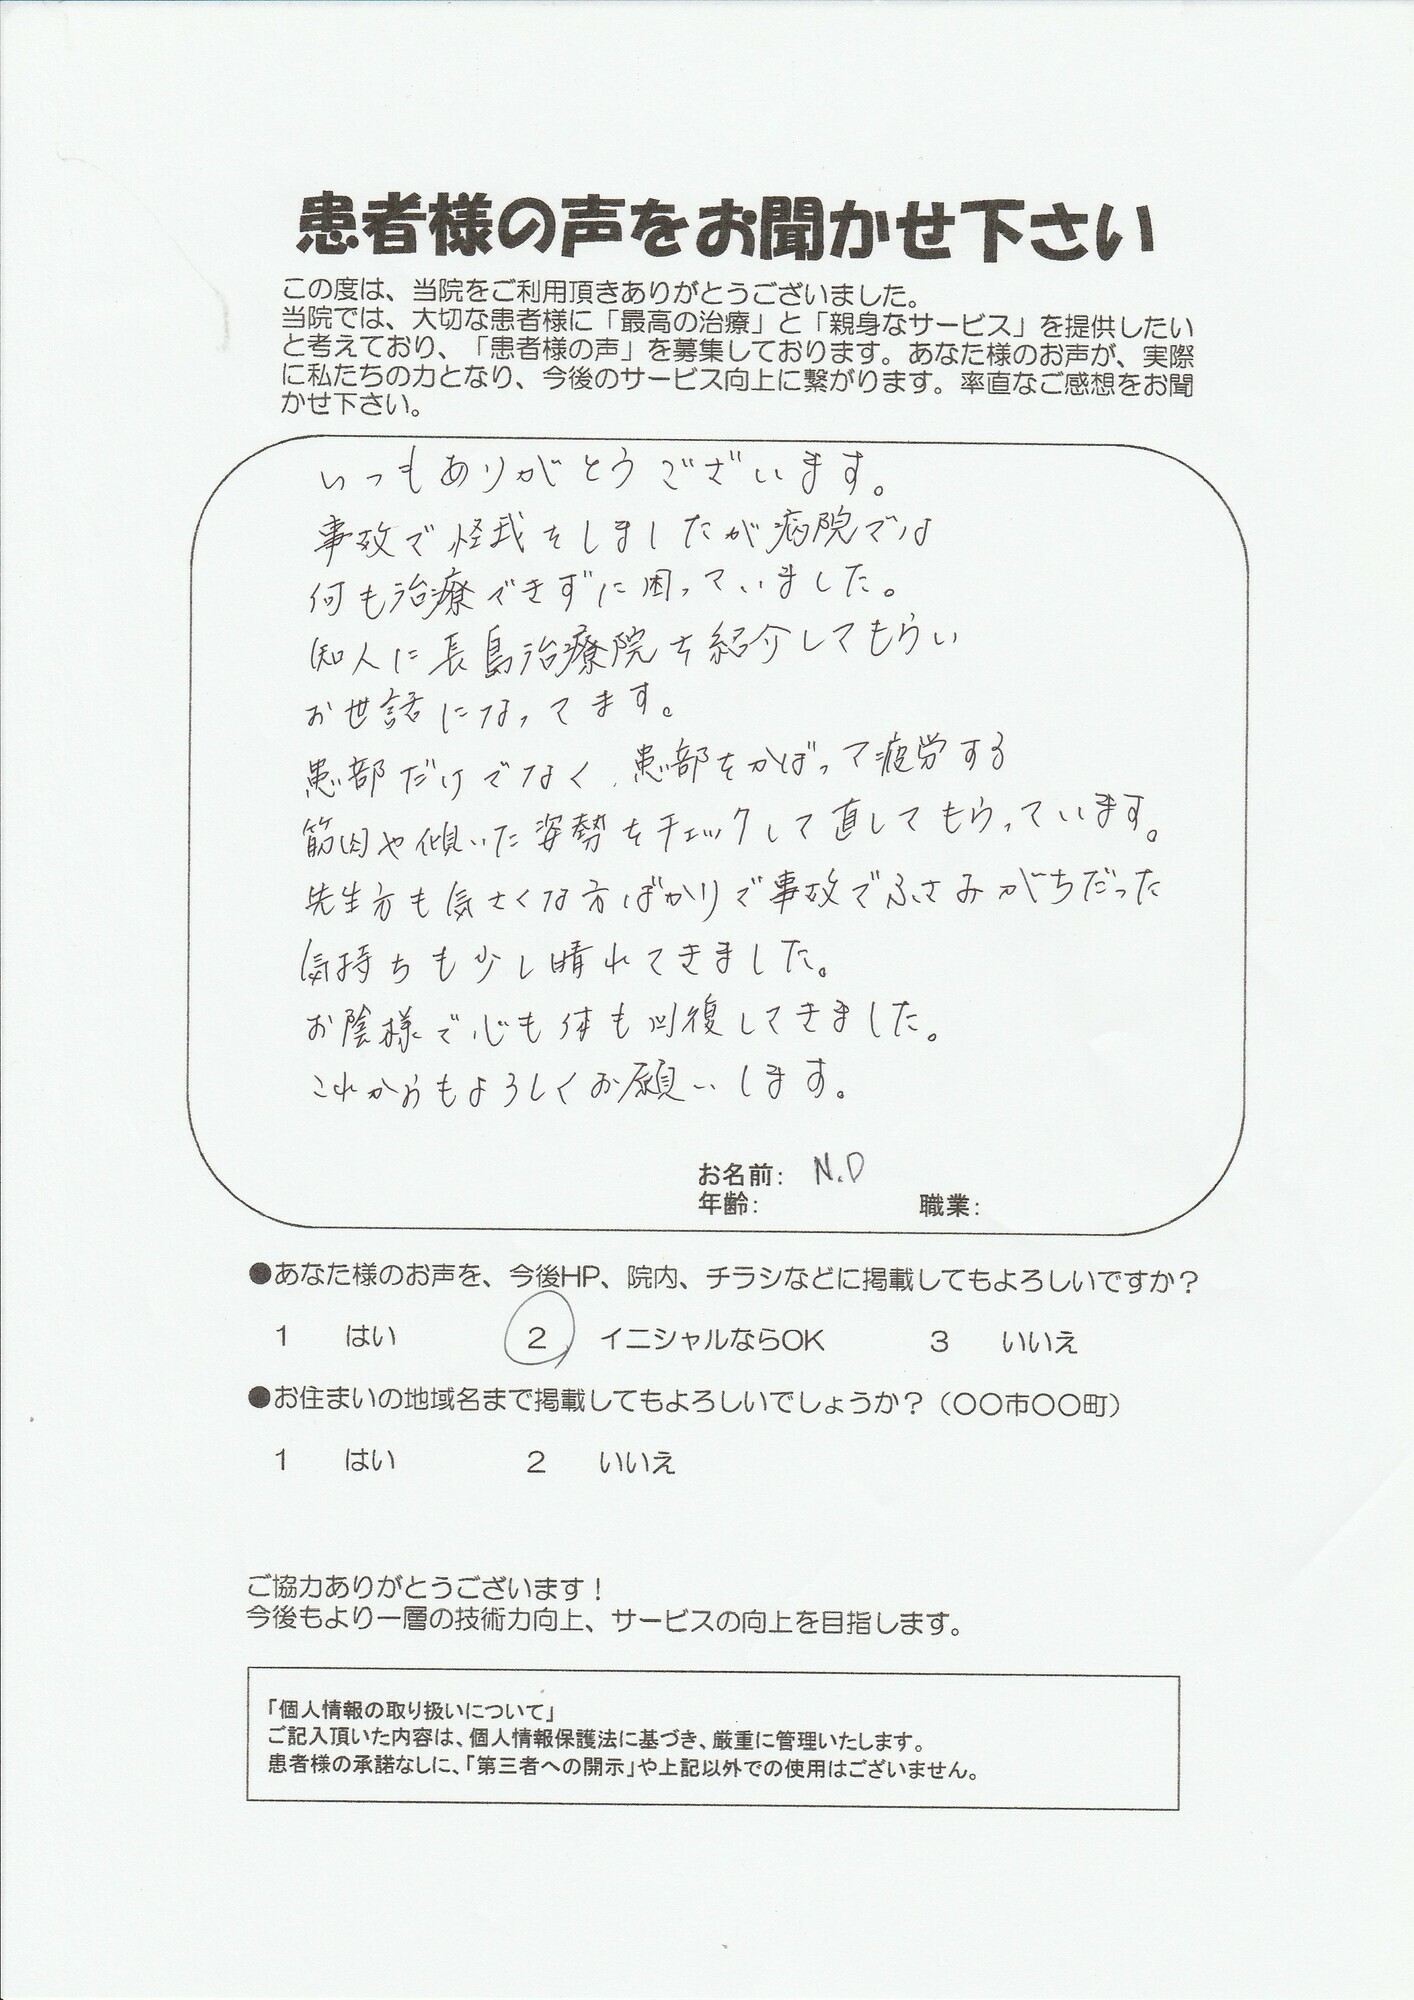 患者様の声をお聞かせ下さい
この度は、当院をご利用頂きありがとうございました。
当院では、大切な患者様に「最高の治療」と「親身なサービス」を提供したい
と考えており、「患者様の声」を募集しております。あなた様のお声が、実際
に私たちの力となり、今後のサービス向上に繋がります。率直なご感想をお聞
かせ下さい。
いつもありがとうございます。
事故で怪我をしましたが病院では
何も治療できずに困っていました。
知人に長島治療院を紹介してもらい
お世話になってます。
患部だけでなく、患部をかばって疲労する
筋肉や傾いた姿勢をチェックして直してもらっています。
先生方も気さくな方ばかりで事故でふさみがちだった
気持ちも少し晴れてきました。
お陰様で心も体も回復してきました。
これからもよろしくお願いします。
お名前: N.D
年齢: 職業:
●あなた様のお声を、今後HP、院内、チラシなどに掲載してもよろしいですか？
1 はい 2 イニシャルならOK 3 いいえ
●お住まいの地域名まで掲載してもよろしいでしょうか？（〇〇市〇〇町）
1 はい 2 いいえ
ご協力ありがとうございます！
今後もより一層の技術力向上、サービスの向上を目指します。
「個人情報の取り扱いについて」
ご記入頂いた内容は、個人情報保護法に基づき、厳重に管理いたします。
患者様の承諾なしに、「第三者への開示」や上記以外での使用はございません。